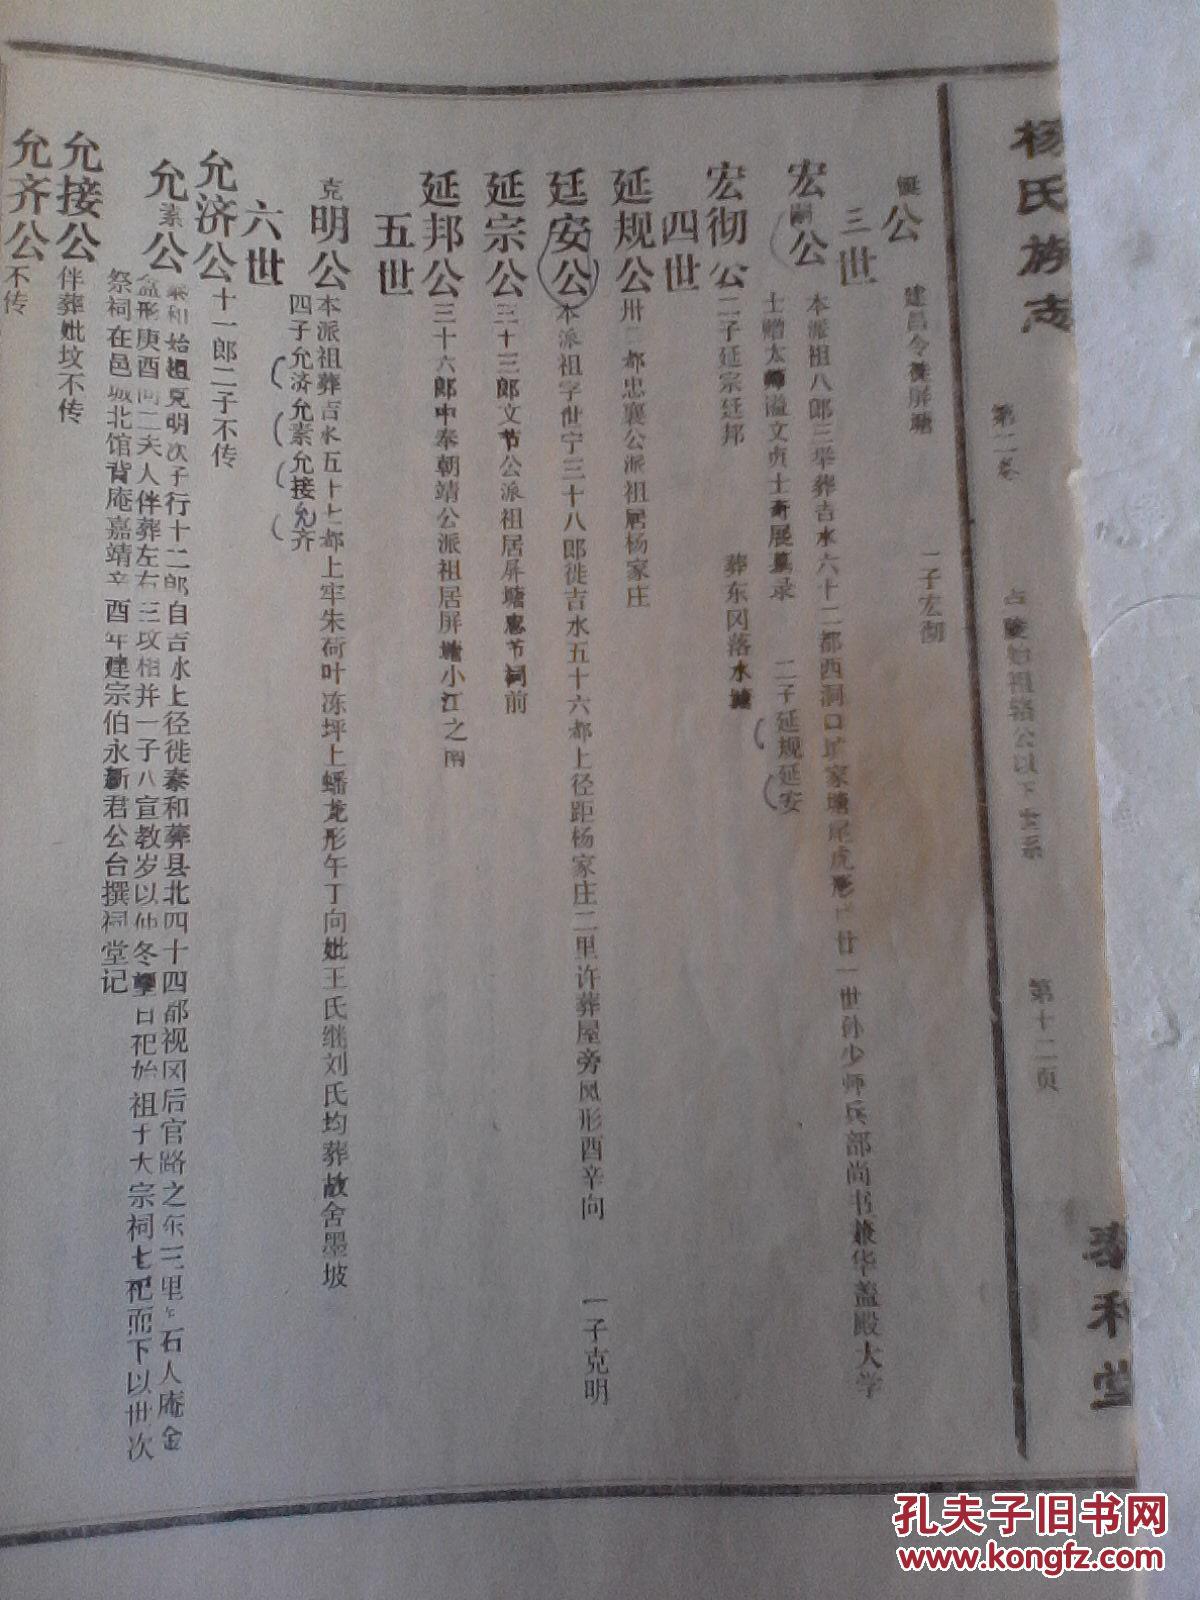 杨氏族志
第二卷
始祖辂公以下世系
第十二页
公 建昌令徙屏塘 一子宏彻
三世
宏嗣公 本派祖八郎三举葬吉水六十二都西洞口圹家塘尾虎形 廿一世孙少师兵部尚书兼华盖殿大学
士赠太师谥文贞士奇展墓录 二子延规延安
宏彻公 二子延宗廷邦 葬东冈落水塘
四世
延规公 卅二都忠襄公派祖居杨家庄
廷安公 本派祖字世宁三十八郎徙吉水五十六都上径距杨家庄二里许葬屋旁凤形酉辛向 一子克明
延宗公 三十三郎文节公派祖居屏塘忠节祠前
延邦公 三十六郎中奉朝靖公派祖居屏塘小江之
五世
克明公 本派祖葬吉水五十七都上牢朱荷叶冻坪上蟠龙形午丁向妣王氏继刘氏均葬故舍墨坡
四子允济允素允接允齐
六世
允济公 十一郎二子不传
允素公 泰和始祖克明次子行十二郎自吉水上径徙泰和葬县北四十四都视冈后官路之东三里 石人庵金
盆形庚酉向二夫人伴葬左右三坟相并一子八宣教岁以仲冬望日祀始祖于大宗祠七祀而下以世次
祭祠在邑城北馆背庵嘉靖辛酉年建宗伯永新君公台撰祠堂记
允接公 伴葬妣坟不传
允齐公 不传
孔夫子旧书网
www.kongfz.com